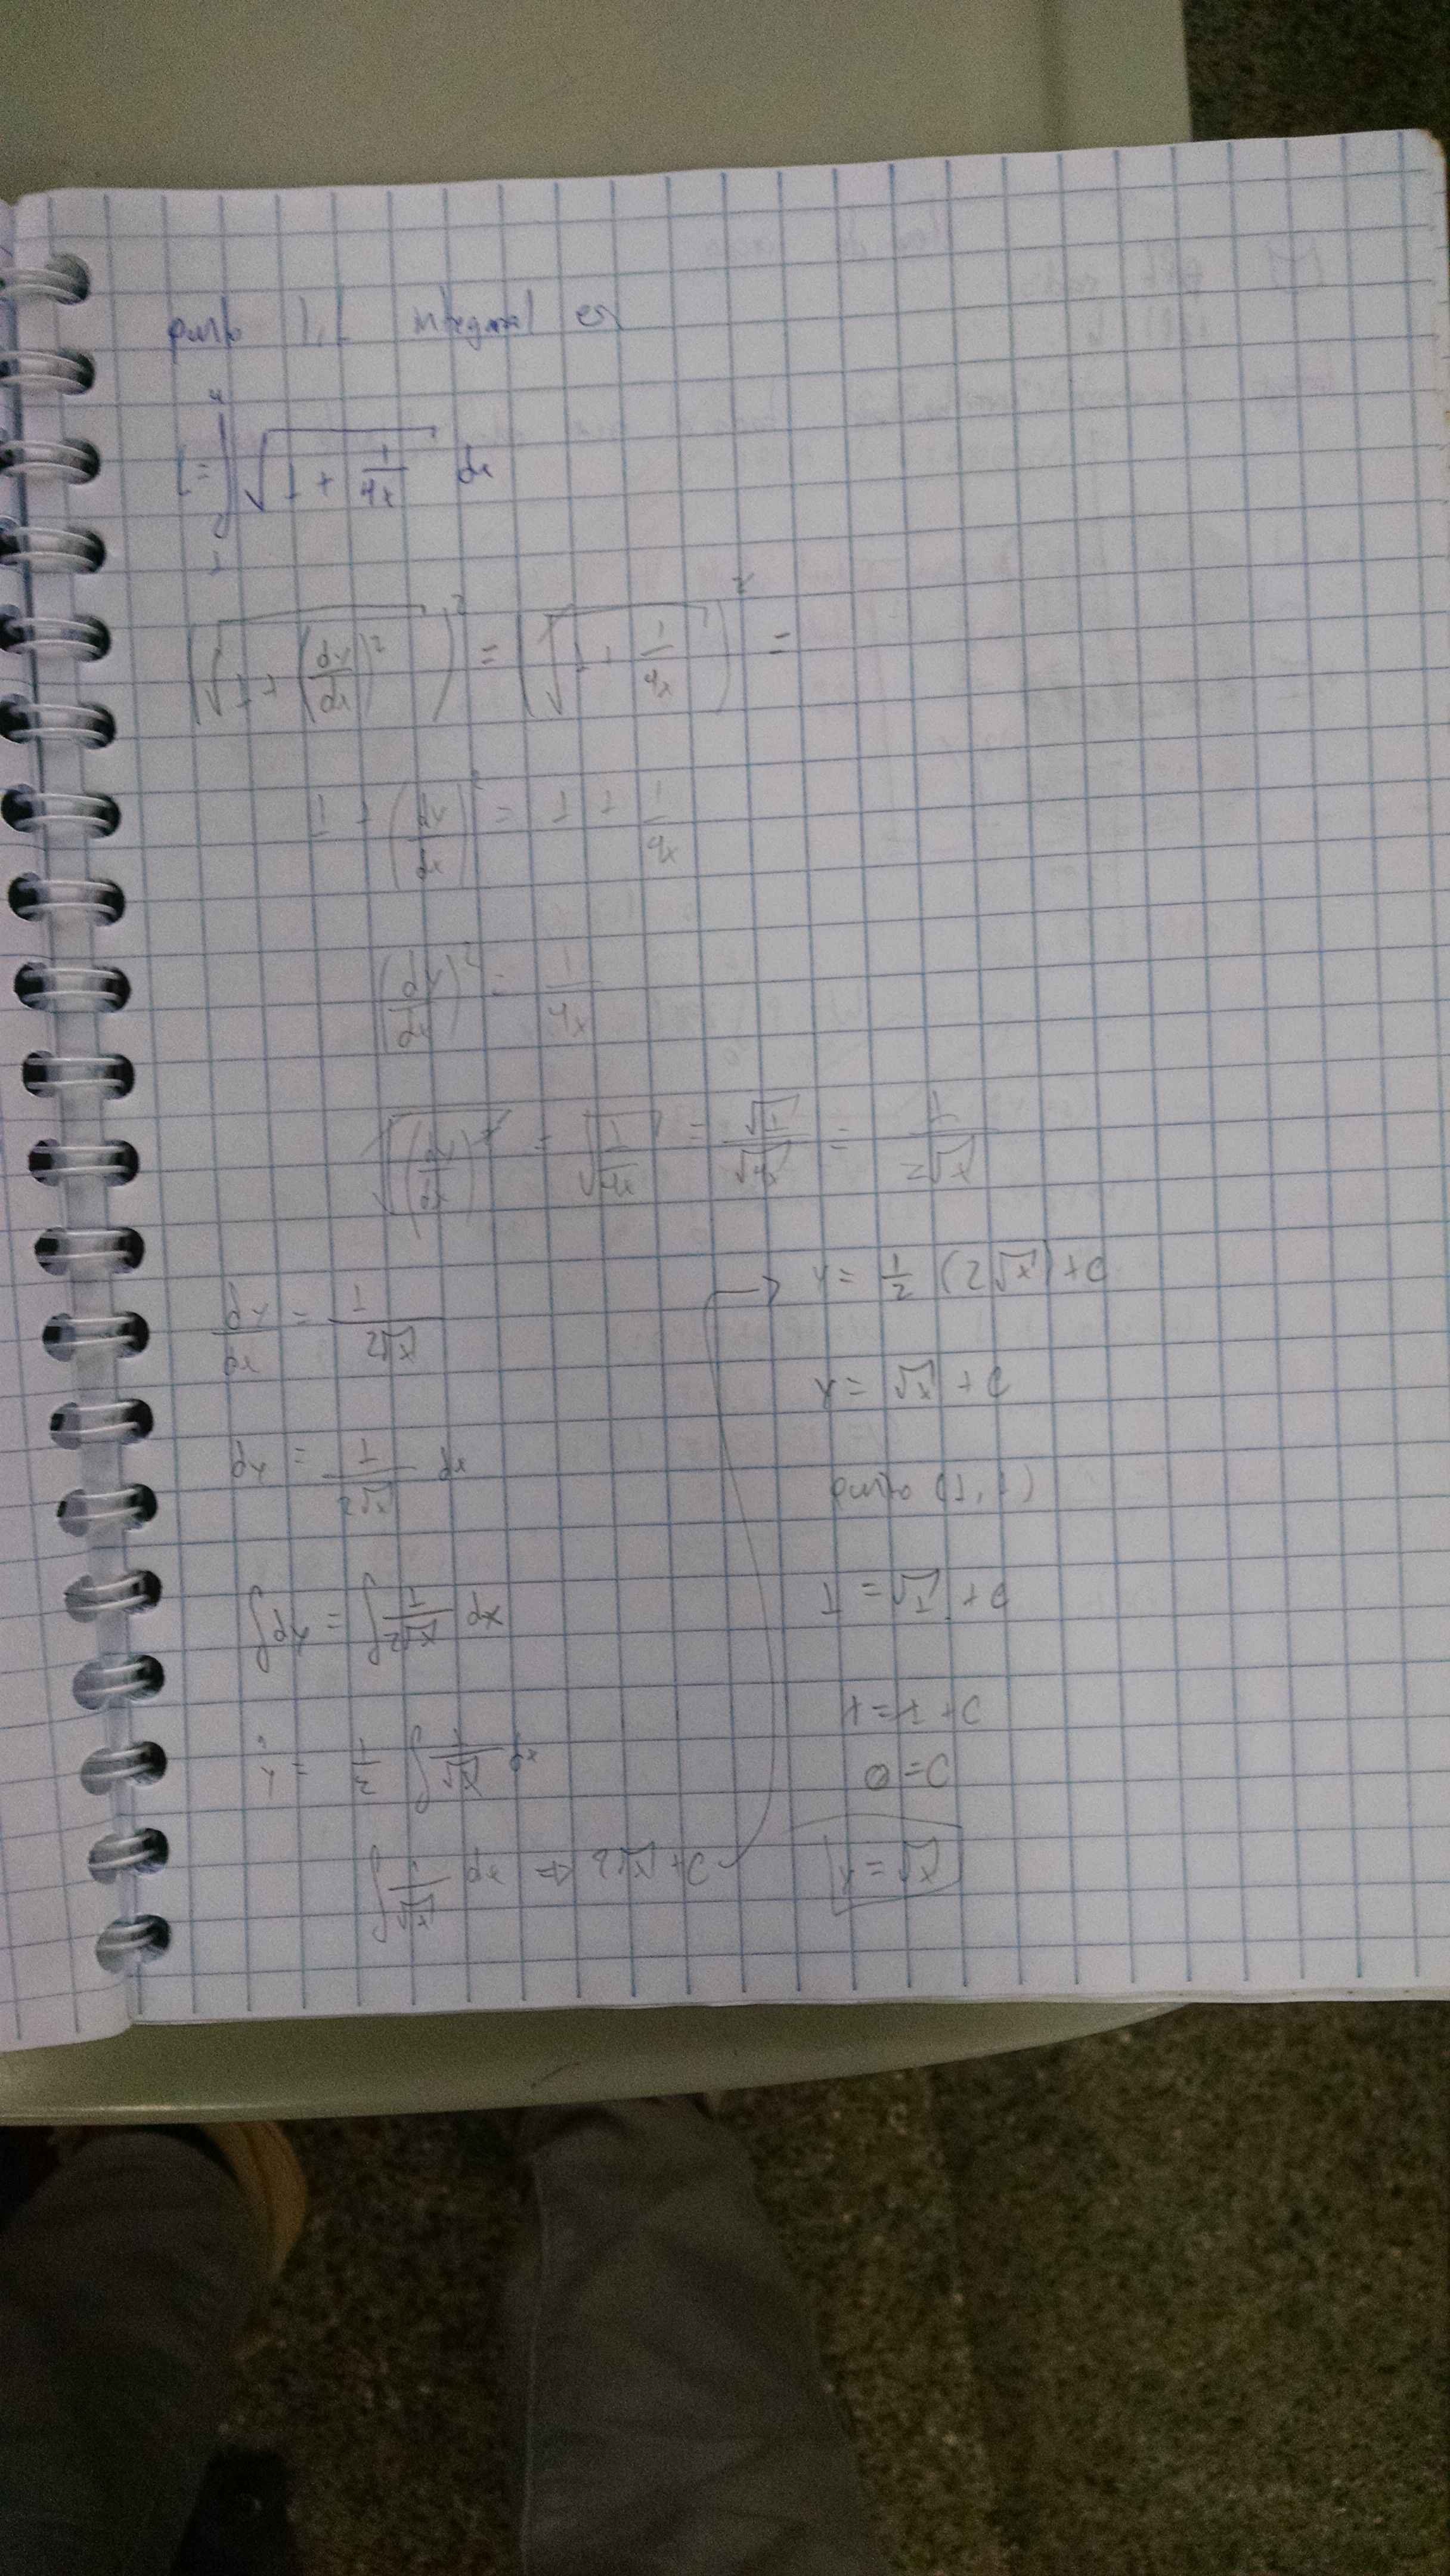 punto 1,1 integral es
L = ∫₁⁴ √(1 + 1/4x) dx
(√(1 + (dy/dx)²))² = (√(1 + 1/4x))² =
1 + (dy/dx)² = 1 + 1/4x
(dy/dx)² = 1/4x
√(dy/dx)² = √(1/4x) = √1/√4x = 1/2√x
dy/dx = 1/2√x
dy = 1/2√x dx
∫dy = ∫ 1/2√x dx
y = 1/2 ∫ 1/√x dx
∫ 1/√x dx ⇒ 2√x + C
→ y = 1/2 (2√x) + C
y = √x + C
punto (1,1)
1 = √1 + C
1 = 1 + C
0 = C
y = √x